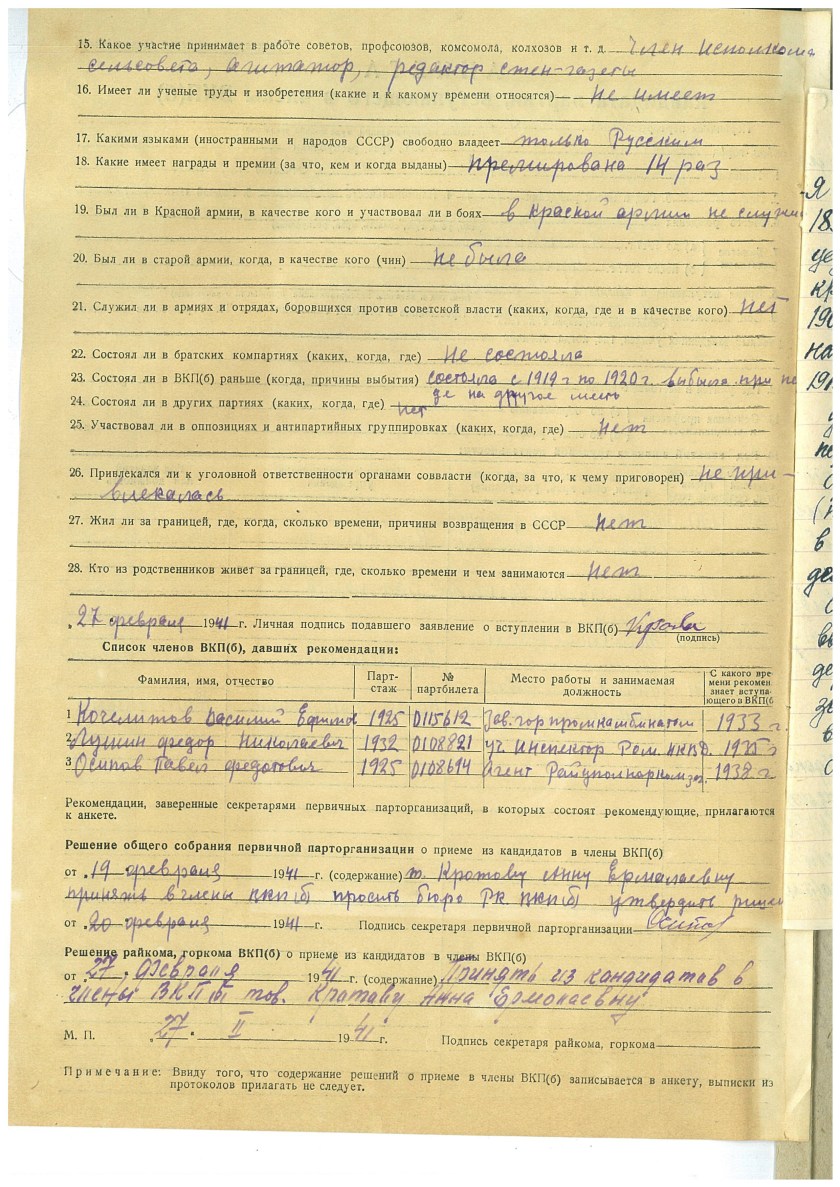 15. Какое участие принимает в работе советов, профсоюзов, комсомола, колхозов и т. д. Член исполкома
сельсовета, агитатор, редактор стен-газеты
16. Имеет ли ученые труды и изобретения (какие и к какому времени относятся) не имеет
17. Какими языками (иностранными и народов СССР) свободно владеет только Русским
18. Какие имеет награды и премии (за что, кем и когда выданы) премирована 14 раз
19. Был ли в Красной армии, в качестве кого и участвовал ли в боях в Красной армии не служи
20. Был ли в старой армии, когда, в качестве кого (чин) не была
21. Служил ли в армиях и отрядах, боровшихся против советской власти (каких, когда, где и в качестве кого) нет
22. Состоял ли в братских компартиях (каких, когда, где) не состояла
23. Состоял ли в ВКП(б) раньше (когда, причины выбытия) состояла с 1919 г по 1920 г. выбыла при пе
де на другое место
24. Состоял ли в других партиях (каких, когда, где) нет
25. Участвовал ли в оппозициях и антипартийных группировках (каких, когда, где) нет
26. Привлекался ли к уголовной ответственности органами соввласти (когда, за что, к чему приговорен) не при-
влекалась
27. Жил ли за границей, где, когда, сколько времени, причины возвращения в СССР нет
28. Кто из родственников живет за границей, где, сколько времени и чем занимаются нет
„27 февраля 1941 г. Личная подпись подавшего заявление о вступлении в ВКП(б)
(подпись)
Список членов ВКП(б), давших рекомендации:
Фамилия, имя, отчество Парт-стаж № партбилета Место работы и занимаемая должность С какого вре мени рекомен знает вступа- ющего в ВКП(б
1 Василий Ефимов 1925 0115612 Зав. горпромкомбинатом 1933 г.
2 Федор Николаевич 1932 0108821 уч инспектор НКВД. 1935 г
3 Осипов Павел Федотович 1925 0108694 Агент 1938 г
Рекомендации, заверенные секретарями первичных парторганизаций, в которых состоят рекомендующие, прилагаются
к анкете.
Решение общего собрания первичной парторганизации о приеме из кандидатов в члены ВКП(б)
от „19 февраля 1941 г. (содержание) т. Кротову Анну Ермолаевну
принять в члены просить бюро РК утвердить реше
от „20 февраля 1941 г. Подпись секретаря первичной парторганизации Осипов
Решение райкома, горкома ВКП(б) о приеме из кандидатов в члены ВКП(б)
от „27 „ Февраля 1941 г. (содержание) Принять из кандидатов в
члены ВКП/б/ тов. Кротову Анна Ермолаевну
М. П. „27 „ II 1941 г. Подпись секретаря райкома, горкома
Примечание: Ввиду того, что содержание решений о приеме в члены ВКП(б) записывается в анкету, выписки из
протоколов прилагать не следует.
Я
18
190
на
191
в